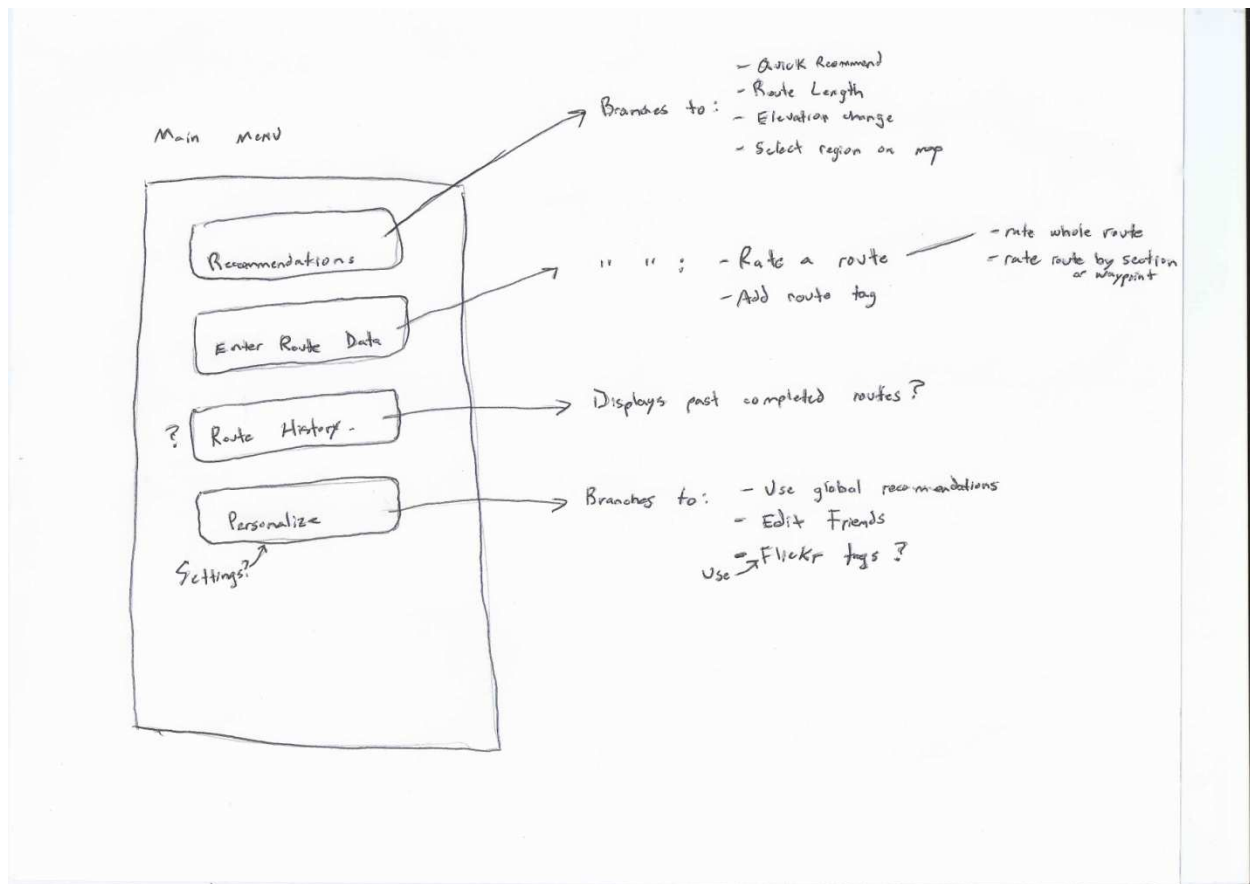 Main Menu
Recommendations
Enter Route Data
? Route History.
Personalize
Settings?
Branches to:
- Quick Recommend
- Route Length
- Elevation change
- Select region on map
" " : - Rate a route
- Add route tag
- rate whole route
- rate route by section
or waypoint
Displays past completed routes?
Branches to:
- Use global recomendations
- Edit Friends
- Flickr tags ?
Use